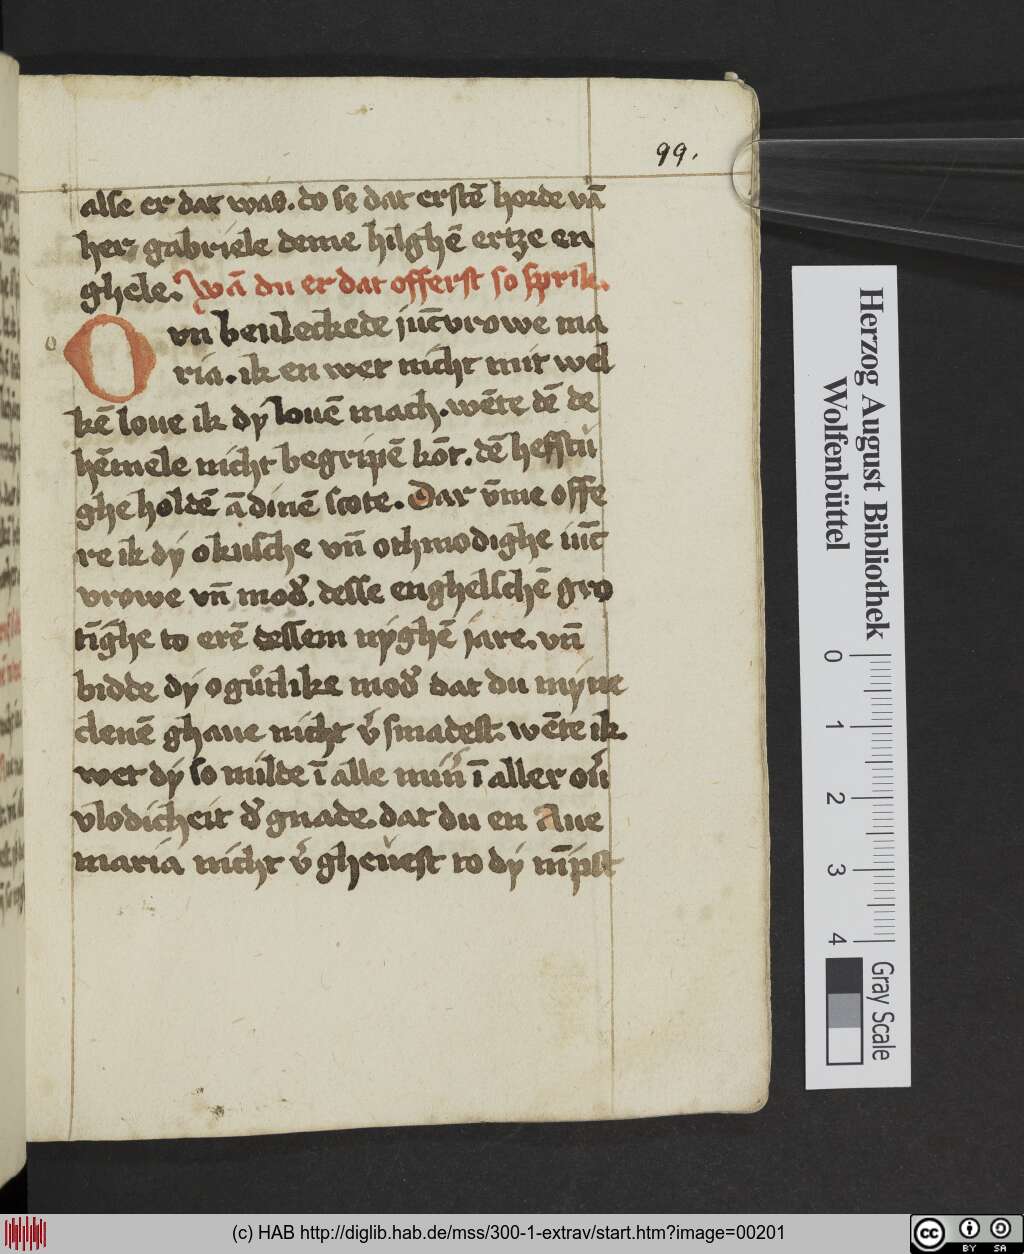 99.
alse er dat was. do se dat erstē horde vā
her gabriele deme hilghē ertze en
ghele. Wā du er dat offerst so sprik.
O vn beuleckede jūcvrowe ma
ria. ik en wet nicht mit wel
kē loue ik dy louē mach. wēte dē de
hēmele nicht begripē kōt. dē hefstu
ghe holdē ā dinē scote. Dar v̄me offe
re ik dy o kusche vn̄ othmodighe iūc
vrowe vn̄ mod'. desse enghelschē gro
tīghe to erē dessem nyghē jare. vn̄
bidde dy o gůtlike mod' dat du myne
clenē ghaue nicht v' smadest. wēte ik
wet dy so milde ī alle ī aller ou'
vlodicheit d' gnade. dat du en Aue
maria nicht v' gheuest to dy
Herzog August Bibliothek
Wolfenbüttel
0 1 2 3 4
Gray Scale
(c) HAB http://diglib.hab.de/mss/300-1-extrav/start.htm?image=00201
cc BY SA